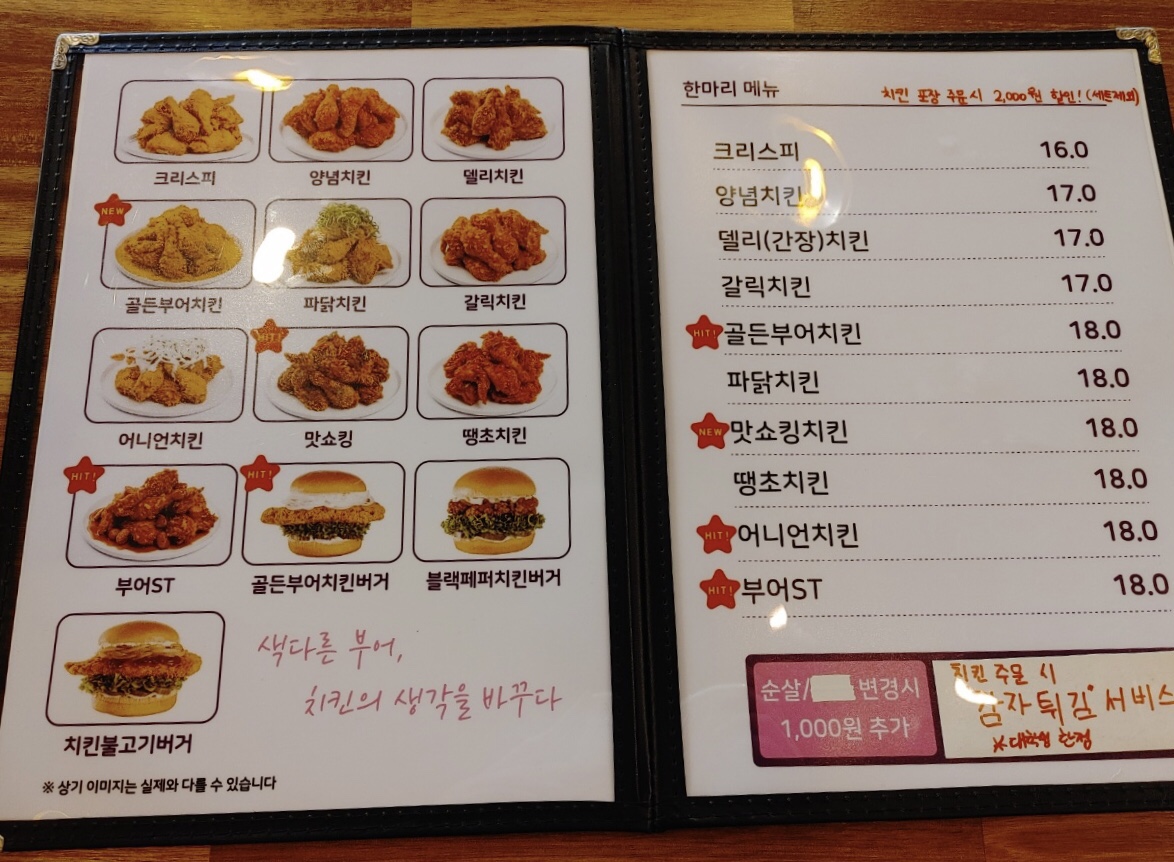 크리스피 양념치킨 델리치킨
NEW
골든부어치킨 파닭치킨 갈릭치킨
HIT!
어니언치킨 맛쇼킹 땡초치킨
HIT! HIT!
부어ST 골든부어치킨버거 블랙페퍼치킨버거
치킨불고기버거
색다른 부어,
치킨의 생각을 바꾸다
※ 상기 이미지는 실제와 다를 수 있습니다
한마리 메뉴 치킨 포장 주문시 2,000원 할인! (세트제외)
크리스피 16.0
양념치킨 17.0
델리(간장)치킨 17.0
갈릭치킨 17.0
HIT! 골든부어치킨 18.0
파닭치킨 18.0
NEW 맛쇼킹치킨 18.0
땡초치킨 18.0
HIT! 어니언치킨 18.0
HIT! 부어ST 18.0
순살/ 변경시
1,000원 추가
치킨 주문 시
감자튀김 서비스
※대학원 한정